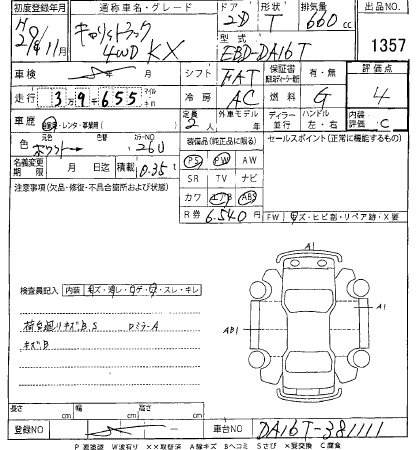 初度登録年月 通称車名・グレード ドア 形状 排気量 出品NO
H 28年11月 キャリイトラック 4WD KX 2D T 660cc 1357
型式 EBD-DA16T
車検 年 月 シフト FAT 有・無 評価点
走行 3万9千655 冷房 AC 燃料 G 4
車歴 レンタ・事業用 定員 2人 外車モデル ディーラー 並行 ハンドル 左・右 内装 評価 C
色 元色 ホワイト 色替 カラーNO 26U 装備品(純正品に限る) セールスポイント(正常に機能するもの)
名義変更期限 月 日迄 積載 0.35t PS PW AW
SR TV ナビ
注意事項(欠品・修復・不具合箇所および状態) カワ エアB ABS
R券 6,540円 FW キズ・ヒビ割・リペア跡・X要
A1
検査員記入 内装 キズ・汚レ・コゲ・穴・スレ・キレ
A1
AB1
荷台廻りキズB.S Dミラ-A
キズB
長さ cm 幅 cm 高さ cm
登録NO 車台NO DA16T-381111
P 要塗装 W波有り XX取替済 A線キズ Bヘコミ Sさび X要交換 C腐食